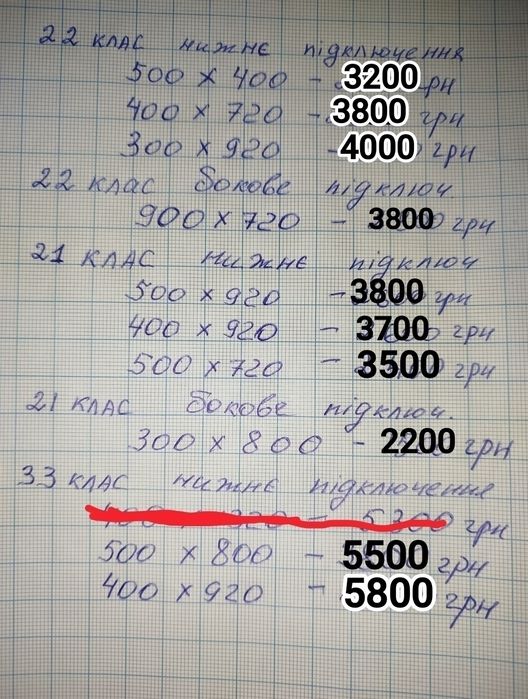 22 клас нижнє підключення
500 х 400 - 3200 грн
400 х 720 - 3800 грн
300 х 920 - 4000 грн
22 клас бокове підключ.
900 х 720 - 3800 грн
21 клас нижнє підключ
500 х 920 - 3800 грн
400 х 920 - 3700 грн
500 х 720 - 3500 грн
21 клас бокове підключ.
300 х 800 - 2200 грн
33 клас нижнє підключення
- 5300 грн
500 х 800 - 5500 грн
400 х 920 - 5800 грн